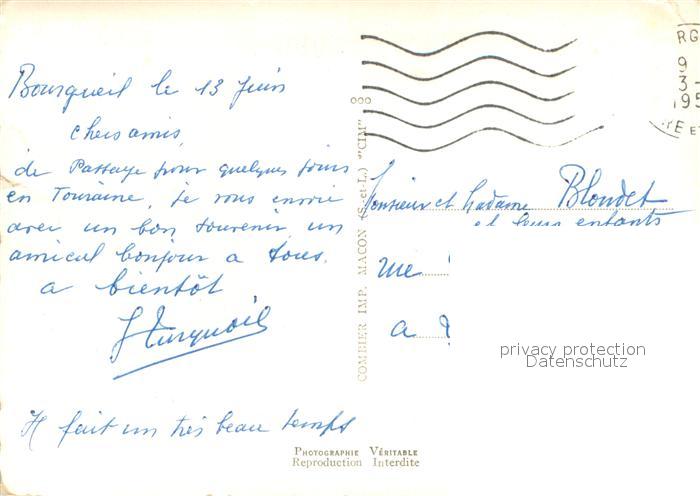 Bourgueil le 13 juin
chers amis,
de Passage pour quelques jours
en Touraine, je vous envoie
avec un bon souvenir un
amical bonjour a tous.
a bientôt
Il fait un très beau temps
COMBIER IMP. MACON (S.-et-L.) "CIM"
RG
9
3-
195
RE ET
Monsieur et Madame Blondet
et leurs enfants
rue
a
privacy protection
Datenschutz
PHOTOGRAPHIE VÉRITABLE
Reproduction Interdite